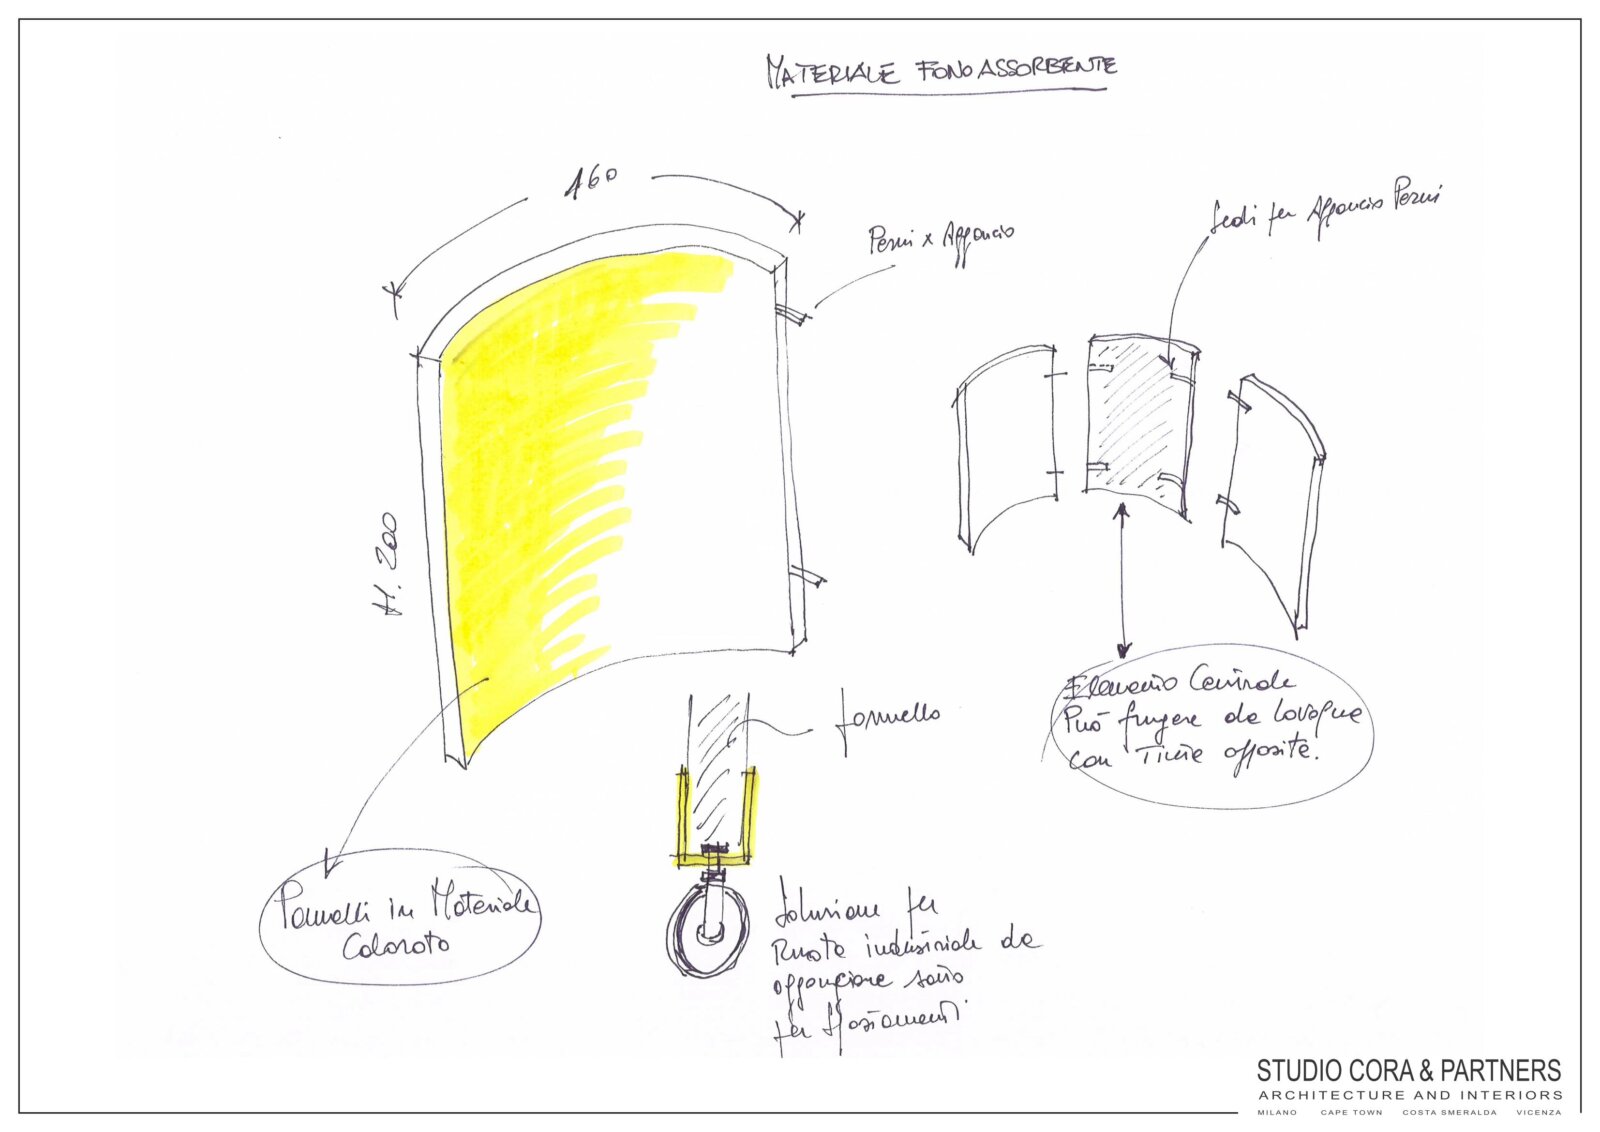 MATERIALE FONOASSORBENTE
160
Perni x Aggancio
Sedi per Aggancio Perni
H. 200
Elemento Centrale
Può fungere da lavagna
con Tinte opposite.
Pannello
Pannelli in Materiale
Colorato
Soluzione per
Ruote industriale da
agganciare sotto
per spostamenti
STUDIO CORA & PARTNERS
ARCHITECTURE AND INTERIORS
MILANO CAPE TOWN COSTA SMERALDA VICENZA